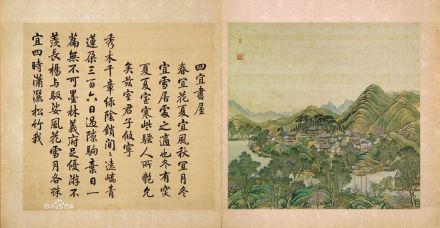 四宜書屋
春宜花夏宜風秋宜月冬
宜雪居處之適也冬有突
夏夏室寒些騷人所艷允
矣茲室君子攸寧
秀木千章綠陰鎖間〻遠嶠青
蓮朶三百六日過隙駒棄日一
篇無不可墨林義府足優游不
羨長楊與馺娑風花雪月各殊
宜四時瀟灑松竹我
Bai百科